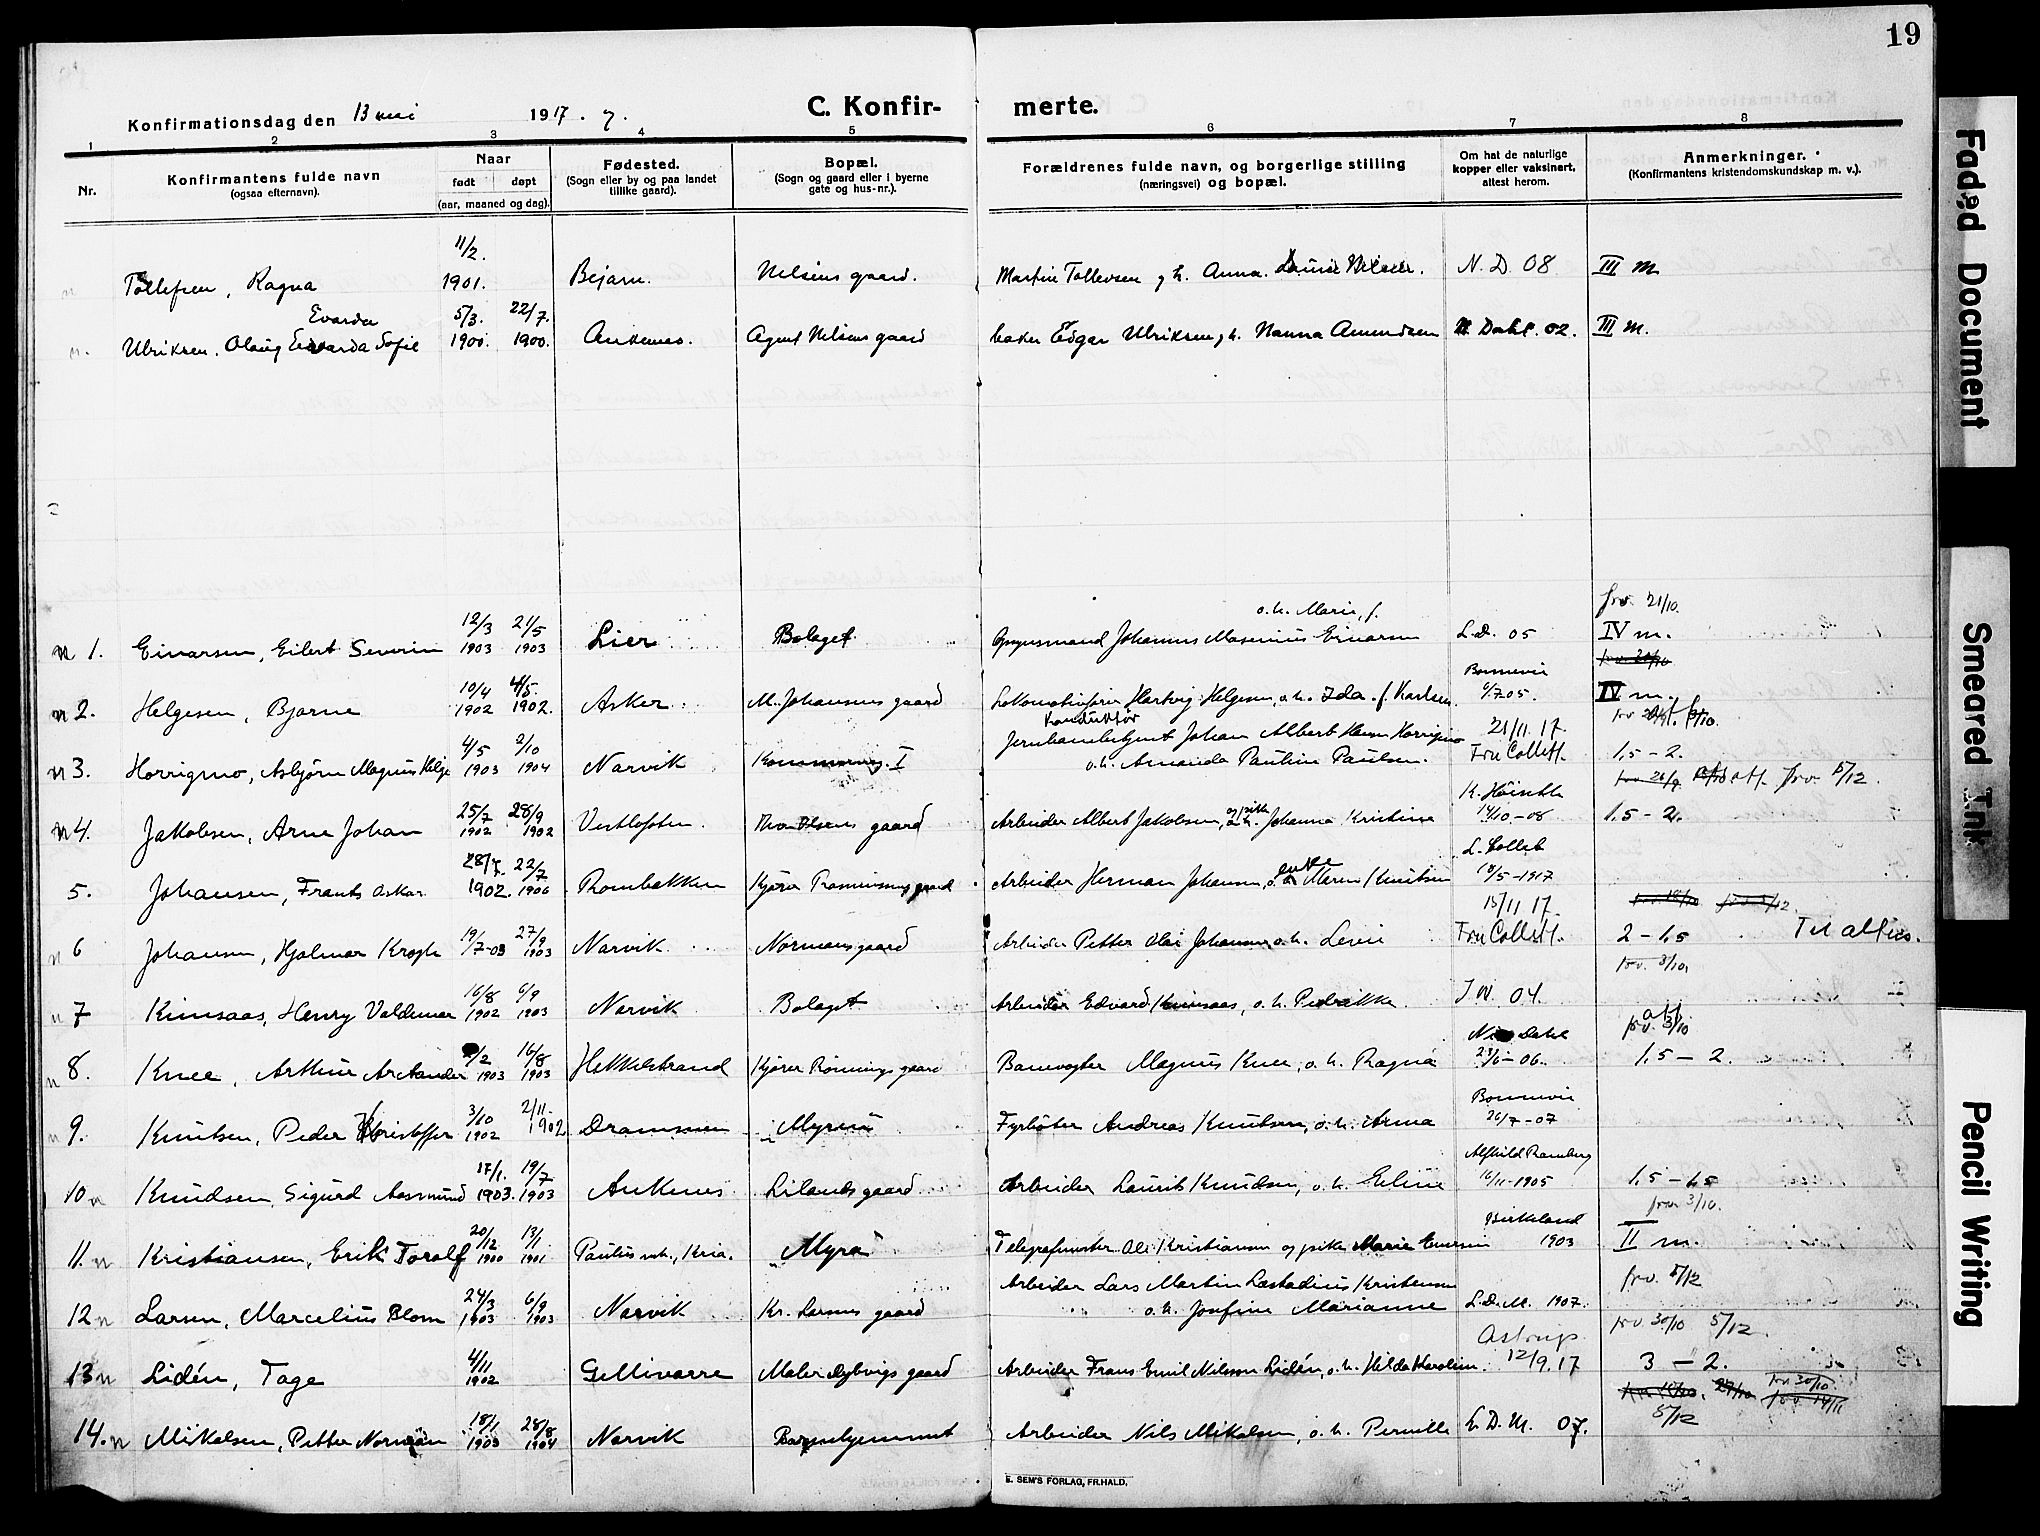 19
Konfirmationsdag den 13 mai 1917.
C. Konfirmerte.
1 2 3 4 5 6 7 8
Nr.
Konfirmantens fulde navn
(ogsaa efternavn).
Naar
født døpt
(aar, maaned og dag).
Fødested.
(Sogn eller by og paa landet
tillike gaard).
Bopæl.
(Sogn og gaard eller i byerne
gate og hus-nr.).
Forældrenes fulde navn, og borgerlige stilling
(næringsvei) og bopæl.
Om hat de naturlige
kopper eller vaksinert,
attest herom.
Anmerkninger.
(Konfirmantens kristendomskundskap m. v.).
Tollefsen, Ragna 11/2. 1901. Bejarn. Nilsens gaard. Martin Tollevsen g h. Anna N. D. 08 III m
Evarda
Ulriksen. Olaug Sofie 5/3. 1900. 22/7. 1900. Ankenes. Agent Nilsens gaard baker Edgar Ulriksen, h. Nanna Amundsen Dahl. 02. III m.
o. h. Marie, f.
frv. 21/10.
n 1. Einarsen, Eilert Severin 12/3 1903 21/5 1903 Lier Bolaget Johannes Masenius Einarsen L.D. 05 IV m.
n 2. Helgesen, Bjarne 10/4 1902 4/5. 1902. Asker M. Johansens gaard Hartvig Helgesen, o. h. Ida f. Karlsen. Bonnevie 6/7 05. IV m.
Konduktør
n 3. Horrigmo, Asbjørn Magnus Helge 4/5 1903 2/10 1904 Narvik I Johan Albert Horrigmo
o. h. Amanda Pauline Paulsen. 21/11 17. Fru Collett. 1,5 - 2.
frv. 5/12.
n 4. Jakobsen, Arne Johan 25/7 1902 28/9 1902 Vestlofoten. Olsens gaard Arbeider Albert Jakobsen, Johanna Kristine 14/10-08 1.5 - 2.
5. Johansen, Frants Oskar 28/7. 1902. 22/7 1906 Rombakken Kjører gaard Arbeider Herman Johansen, enke Maren Knutsen L. Collett 18/5-1917
n 6 Johansen, Hjalmar Krogh 19/7-03 27/9 1903 Narvik Normans gaard Arbeider Petter Johansen o. h. 15/11 17. Fru Collett. 2 - 1,5
frv. 3/10,
n 7 Kimsaas, Henry Valdemar 16/8 1902 6/9 1903 Narvik Bolaget Arbeider Edvard Kimsaas, o. h. Pedrikke. J. W. 04.
att
frv. 3/10
n 8. Knee, Arthur Arctander /2 1903 16/8 1903 Hekkelstrand Kjører Rønnings gaard Banevogter Magnus Knee, o. h. Ragna Dahl 23/6-06. 1,5 - 2.
n 9. Knutsen, Peder Kristoffer 3/10 1902 2/11- 1902 Drammen Myren Fyrbøter Andreas Knutsen, o. h. Anna Bonnevie 26/7-07
10 n Knudsen, Sigurd Aasmund 17/1. 1903. 19/7 1903 Ankenes Lilands gaard Arbeider Laurits Knudsen, o. h. Eline Alfhild Ramberg 16/11-1905 1,5 - 1,5
frv 3/10.
11. n Kristiansen, Erik Toralf 20/12 1900 13/1 1901 Paulus mh., Kria. Myra Telegrafmester Ole Kristiansen og pike Marie Birkeland 1903 II m.
frv. 5/12
12 n Larsen, Marcelius Blom 24/3 1903 6/9 1903 Narvik Kr. Larsens gaard Arbeider Lars Martin Læstadius Kristensen
o. h. Josefine Marianne L. D. M. 1907.
frv. 30/10 5/12.
13 n Lidén, Tage 4/11 1902 Gellivarre Maler Dybvigs gaard Arbeider Frans Emil Nilsson Lidén, o. h. Hilda Karolin. Astrup 12/9.17 3 - 2.
5/12
14. n Mikalsen, Petter Norman 18/1 1903 28/8 1904 Narvik Barnehjemmet Arbeider Nils Mikalsen, o. h. Pernille L. D. M. 07.
Til altus.
E. SEM'S FORLAG, FR.HALD.
Faded Document
Smeared Ink
Pencil Writing